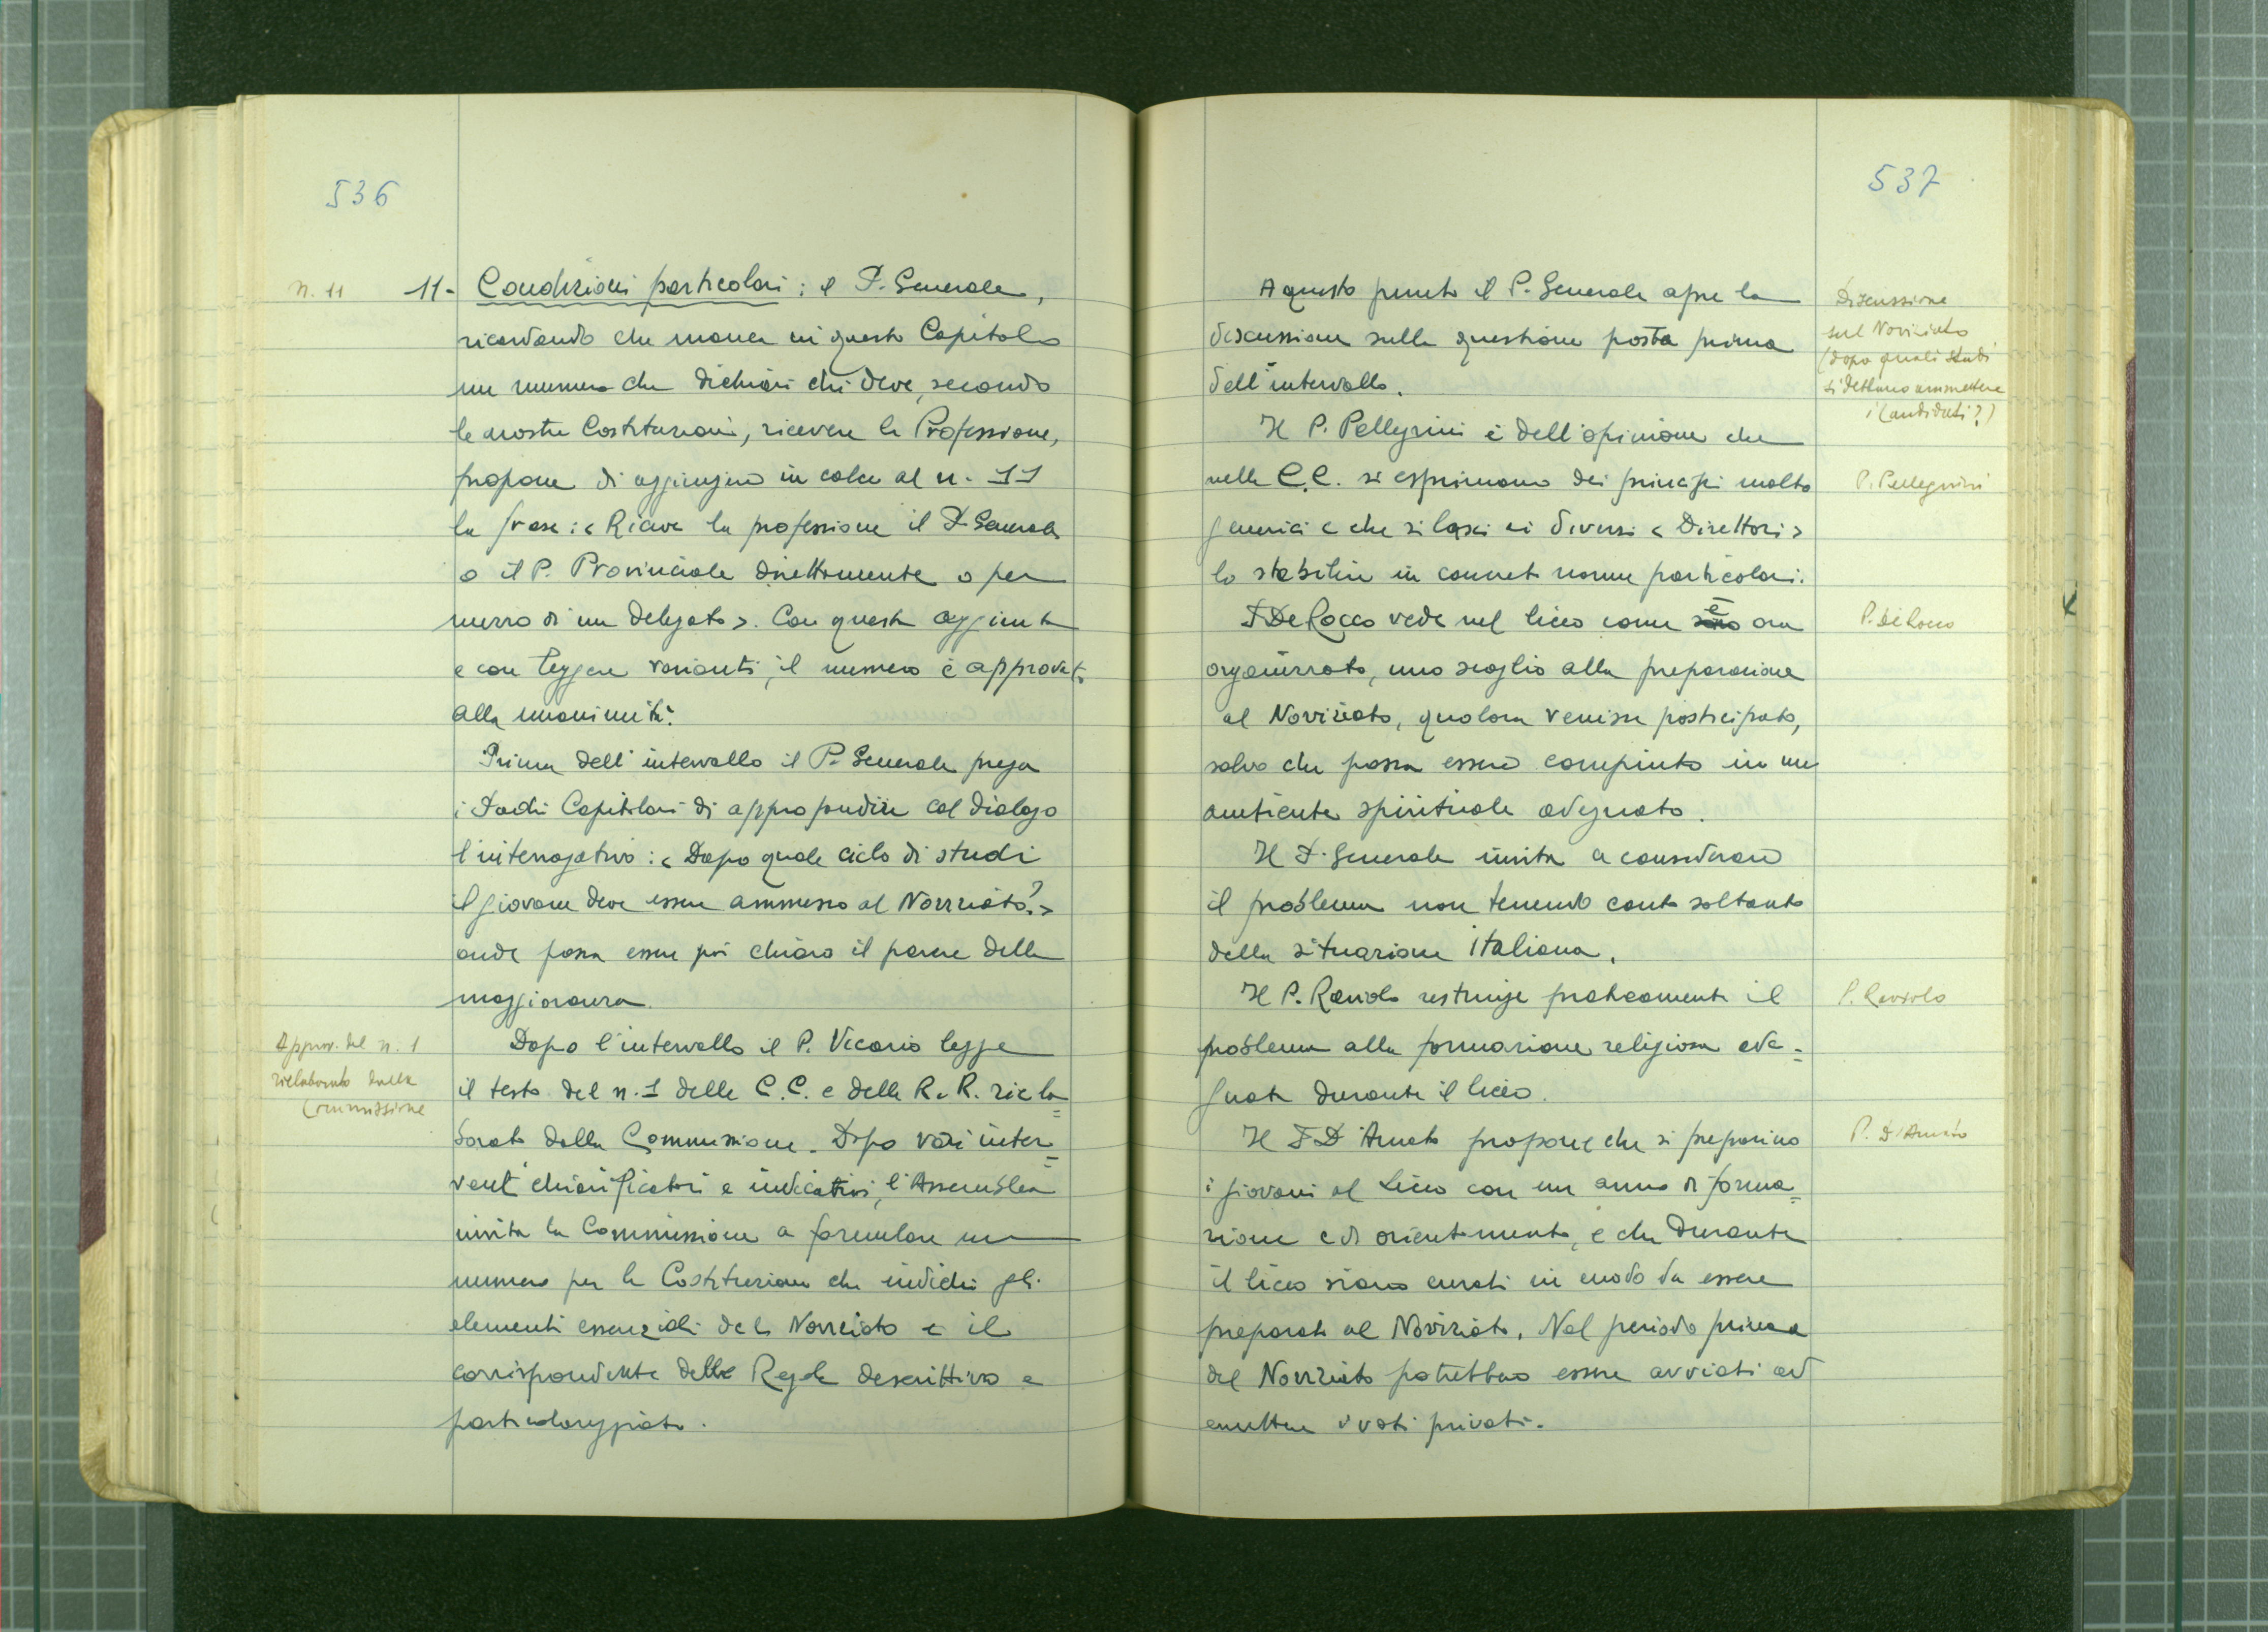 536
n. 11
11- Condizioni particolari: il P. Generale,
ricordando che manca in questo Capitolo
un numero che dichiari chi deve, secondo
le nostre Costituzioni, ricevere la Professione,
propone di aggiungere in calce al n. 11
la frase: < Riceve la professione il P. Generale
o il P. Provinciale direttamente o per
mezzo di un delegato >. Con questa aggiunta
e con leggere varianti, il numero è approvato
alla unanimità.
Prima dell'intervallo il P. Generale prega
i Padri Capitolari di approfondire col dialogo
l'interrogativo: < Dopo quale ciclo di studi
il giovane deve essere ammesso al Noviziato? >
onde possa essere poi chiaro il parere della
maggioranza.
Approv. del n. 1
rielaborato dalla
Commissione
Dopo l'intervallo il P. Vicario legge
il testo del n. 1 delle C.C. e delle R.R. riela=
borato dalla Commissione. Dopo vari inter=
venti chiarificatori e indicativi, l'Assemblea
invita la Commissione a formulare un
numero per le Costituzioni che indichi gli
elementi essenziali del Noviziato e il
corrispondente delle Regole descrittivo e
particolareggiato.
537
A questo punto il P. Generale apre la
discussione sulla questione posta prima
dell'intervallo.
Discussione
sul Noviziato
(dopo quali studi
si debbano ammettere
i Candidati?)
Il P. Pellegrini è dell'opinione che
nelle C.C. si esprimano dei principi molto
generici e che si lasci ai diversi < Direttori >
lo stabilire in concreto norme particolari.
P. Pellegrini
P. De Rocco vede nel liceo come sono è ora
organizzato, uno scoglio alla preparazione
al Noviziato, qualora venisse posticipato,
salvo che possa essere compiuto in un
ambiente spirituale adeguato.
P. De Rocco
Il P. Generale invita a considerare
il problema non tenendo conto soltanto
della situazione italiana.
Il P. Raviolo restringe praticamente il
problema alla formazione religiosa ade=
guata durante il liceo.
P. Raviolo
Il P. D'Amato propone che si preparino
i giovani al Liceo con un anno di forma=
zione e di orientamento, e che durante
il liceo siano curati in modo da essere
preparati al Noviziato. Nel periodo prima
del Noviziato potrebbero essere avviati ad
emettere i voti privati.
P. D'Amato